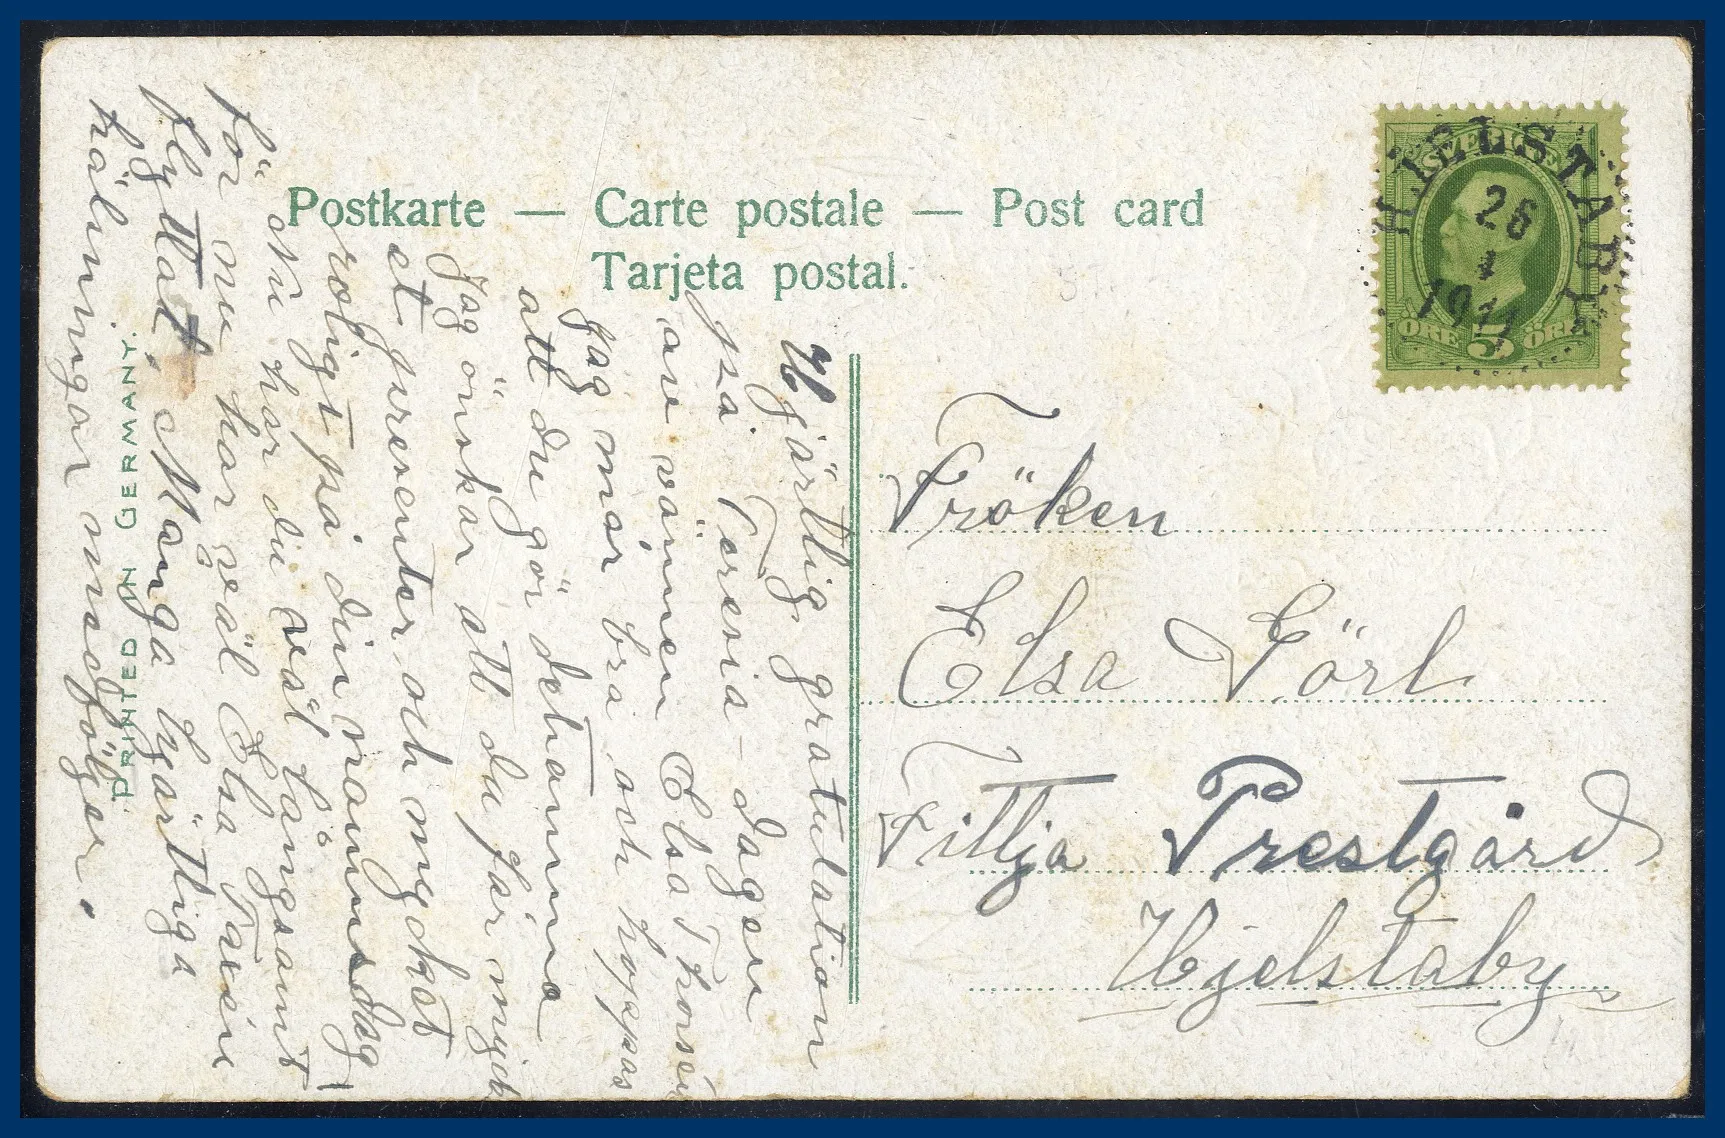 Postkarte — Carte postale — Post card
Tarjeta postal.
PRINTED IN GERMANY.
HJELSTABY
26
1
1911
SVERIGE
ÖRE 5 ÖRE
Hjärtlig gratulation
på Teresia-dagen
av vännen Elsa Thorsén
Jag mår bra och hoppas
att du gör detamma
Jag önskar att du får mycket
et presenter och mycket
roligt på din namnsdag!
Nu har du väl långsamt
för nu har väl Elsa
flyttat, Många hjärtliga
hälningar medföljer.
Fröken
Elsa Görl
Fittja Prestgård
Hjelstaby